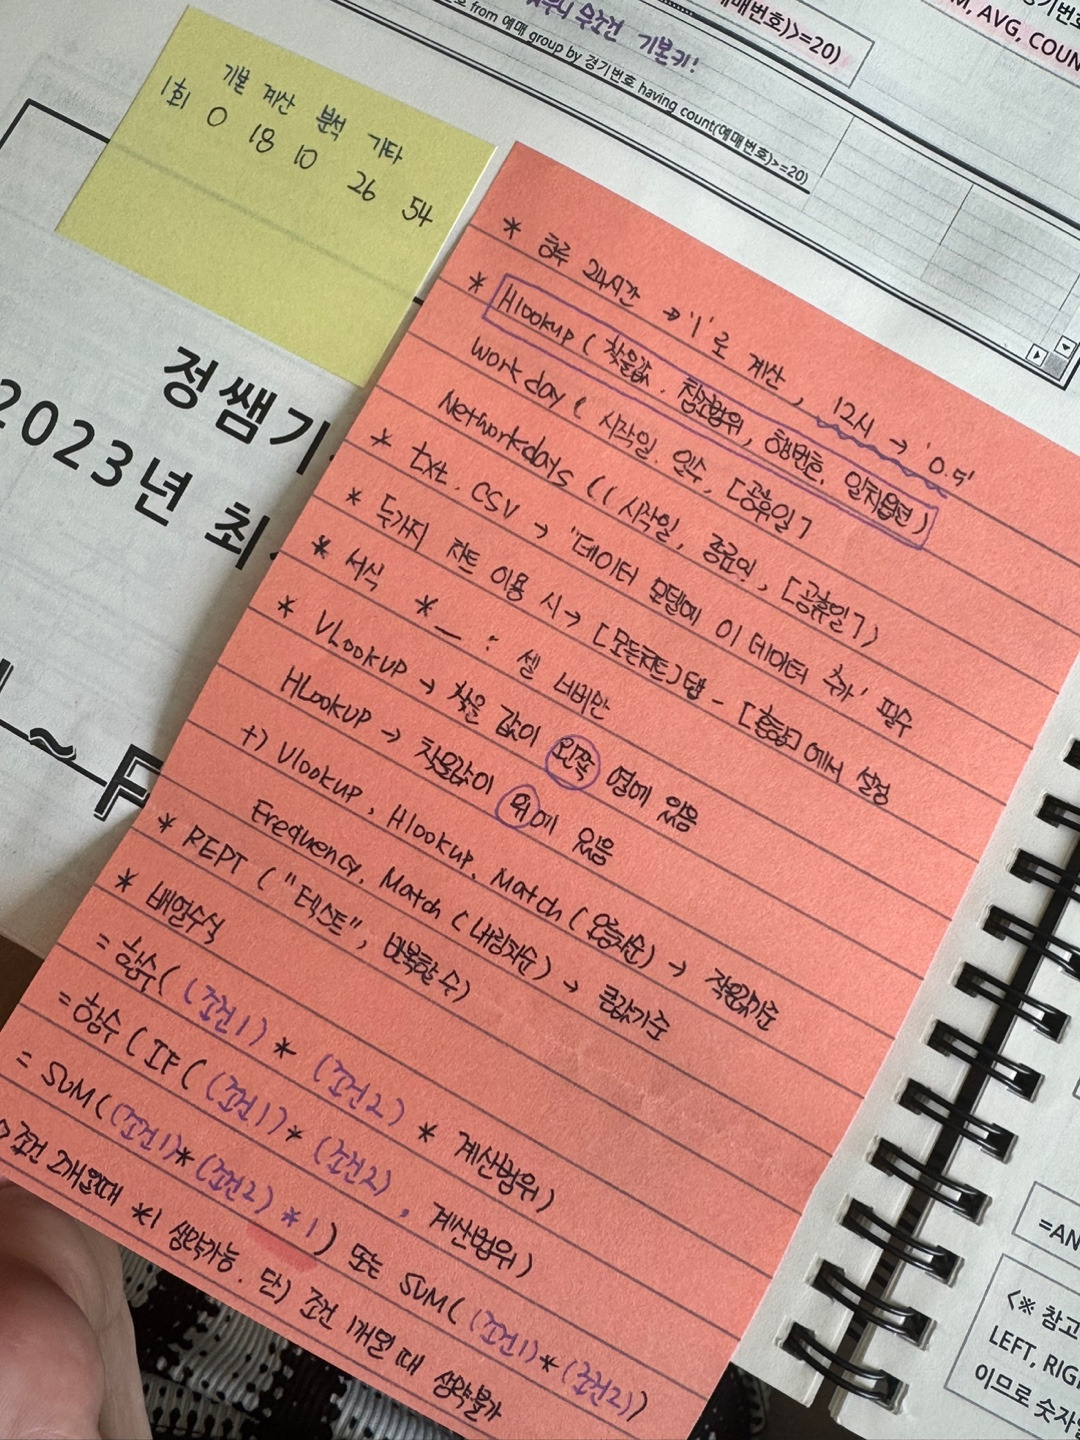 부터 무조건 기본키!
매번호)>=20)
M, AVG, COUN
호 from 예매 group by 경기번호 having count(예매번호)>=20)
기본 계산 분석 기타
1회 0 18 10 26 54
정쌤기
2023년 최
* 하루 24시간 → '1'로 계산, 12시 → '0.5'
* Hlookup ( 찾을값, 참조범위, 행번호, 일치옵션 )
workday ( 시작일, 일수, [공휴일]
Networkdays ( ( 시작일, 종료일, [공휴일] )
* txt, CSV → '데이터 모델에 이 데이터 추가' 필수
* 두가지 차트 이용 시 → [모든차트]탭 - [혼합]에서 설정
* 서식 *_ : 셀 너비만
* VLOOKUP → 찾을 값이 왼쪽 열에 있음
HLOOKUP → 찾을값이 위에 있음
+) Vlookup, Hlookup, Match ( 오름차순) → 작은값기준
Frequency, Match (내림차순) → 큰값기준
* REPT ( "텍스트", 반복할 수)
* 배열수식
= 함수( (조건1) * (조건2) * 계산범위)
= 함수 (IF ( (조건1) * (조건2) , 계산범위)
= SUM( (조건1)* (조건2) *1 ) 또는 SUM( (조건1)*(조건2))
> 조건 2개일때 *1 생략가능. 단) 조건 1개일 때 생략불가
=AN
<※ 참고
LEFT, RIG
이므로 숫자